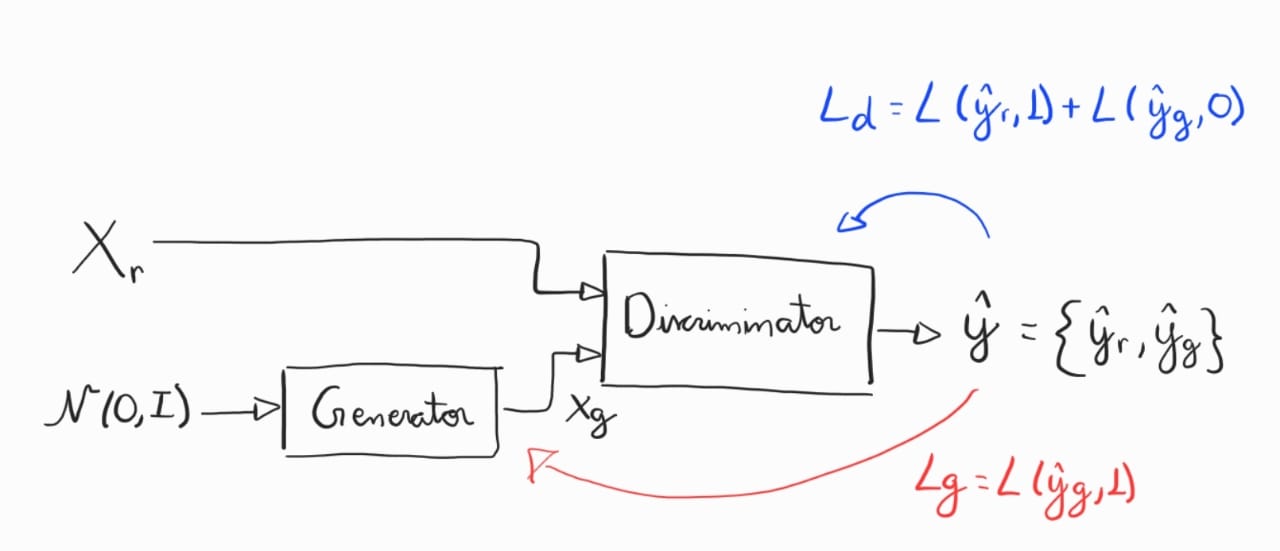 L_d = L(ŷ_r, 1) + L(ŷ_g, 0)
X_r
Discriminator
ŷ = {ŷ_r, ŷ_g}
N(0, I)
Generator
x_g
L_g = L(ŷ_g, 1)